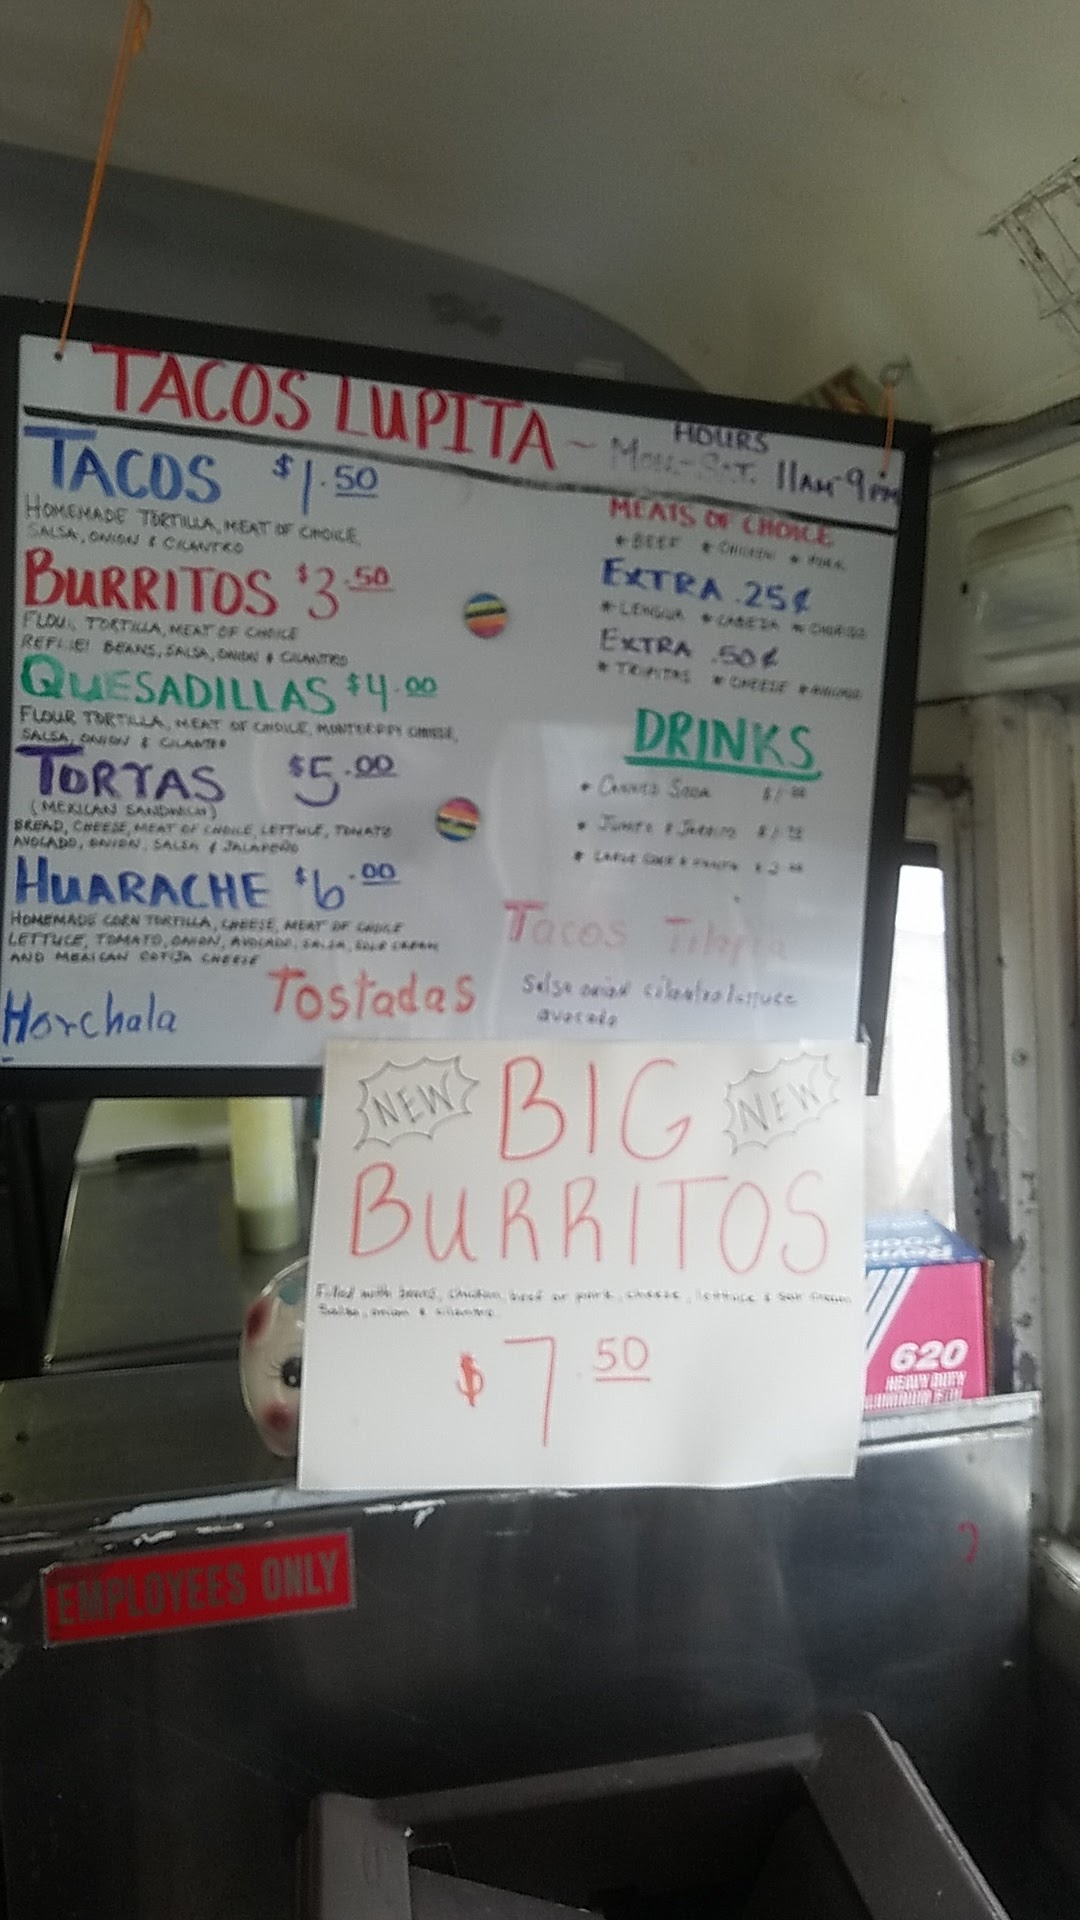 TACOS LUPITA ~ HOURS
MON-SAT. 11AM-9PM
TACOS $1.50
HOMEMADE TORTILLA, MEAT OF CHOICE,
SALSA, ONION & CILANTRO
BURRITOS $3.50
FLOUR TORTILLA, MEAT OF CHOICE
BEANS, SALSA, ONION & CILANTRO
QUESADILLAS $4.00
FLOUR TORTILLA, MEAT OF CHOICE, CHEESE,
SALSA, ONION & CILANTRO
TORTAS $5.00
(MEXICAN SANDWICH)
BREAD, CHEESE, MEAT OF CHOICE, LETTUCE, TOMATO
AVOCADO, ONION, SALSA & JALAPEÑO
HUARACHE $6.00
HOMEMADE CORN TORTILLA, CHEESE, MEAT OF CHOICE
LETTUCE, TOMATO, ONION, AVOCADO, SALSA, SOUR CREAM
AND MEXICAN COTIJA CHEESE
Horchata
Tostadas
MEATS OF CHOICE
* BEEF * CHICKEN * PORK
EXTRA .25¢
* LENGUA * CABEZA * CHORIZO
EXTRA .50¢
* TRIPITAS * CHEESE
DRINKS
* CANNED SODA
* LARGE
Tacos Tilapia
Salsa onion cilantro lettuce
avocado
NEW BIG NEW
BURRITOS
Filled with beans, chicken, beef or pork, cheese, lettuce & sour cream
Salsa, onion & cilantro
$7.50
620
HEAVY DUTY
ALUMINUM FOIL
EMPLOYEES ONLY